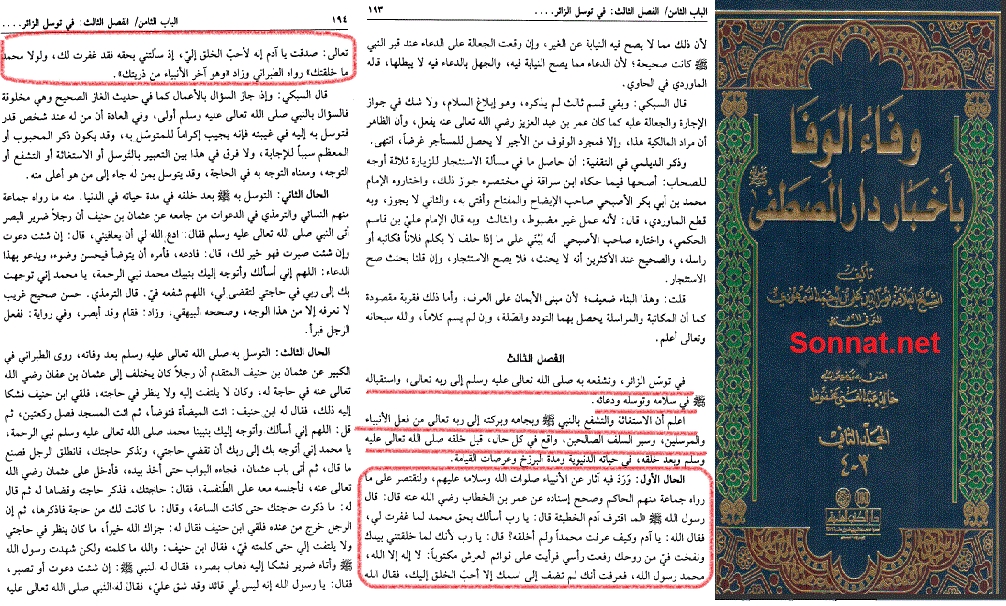 الباب الثامن/ الفصل الثالث: في توسل الزائر....
١٩٤
تعالى: صدقت يا آدم إنه لأحبّ الخلق إليّ، إذ سألتني بحقه فقد غفرت لك، ولولا محمد
ما خلقتك» رواه الطبراني وزاد «وهو آخر الأنبياء من ذريتك».
قال السبكي: وإذ جاز السؤال بالأعمال كما في حديث الغار الصحيح وهي مخلوقة
فالسؤال بالنبي صلى الله تعالى عليه وسلم أولى، وفي العادة أن من له عند شخص قدر
فتوسل به إليه في غيبته فإنه يجيب إكراماً للمتوسّل به، وقد يكون ذكر المحبوب أو
المعظم سبباً للإجابة، ولا فرق في هذا بين التعبير بالتوسل أو الاستغاثة أو التشفع أو
التوجه، ومعناه التوجه به في الحاجة، وقد يتوسل بمن له جاه إلى من هو أعلى منه.
الحال الثاني: التوسل به ﷺ بعد خلقه في مدة حياته في الدنيا. منه ما رواه جماعة
منهم النسائي والترمذي في الدعوات من جامعه عن عثمان بن حنيف أن رجلاً ضرير البصر
أتى النبي صلى الله تعالى عليه وسلم فقال: ادع الله لي أن يعافيني، قال: إن شئت دعوت
وإن شئت صبرت فهو خير لك، قال: فادعه، فأمره أن يتوضأ فيحسن وضوءه، ويدعو بهذا
الدعاء: اللهم إني أسألك وأتوجه إليك بنبيك محمد نبي الرحمة، يا محمد إني توجهت
بك إلى ربي في حاجتي لتقضى لي، اللهم شفعه فيّ. قال الترمذي. حسن صحيح غريب
لا نعرفه إلا من هذا الوجه، وصححه البيهقي. وزاد: فقام وقد أبصر، وفي رواية: ففعل
الرجل فبرأ.
الحال الثالث: التوسل به صلى الله تعالى عليه وسلم بعد وفاته، روى الطبراني في
الكبير عن عثمان بن حنيف المتقدم أن رجلاً كان يختلف إلى عثمان بن عفان رضي الله
تعالى عنه في حاجة له، وكان لا يلتفت إليه ولا ينظر في حاجته، فلقي ابن حنيف فشكا
إليه ذلك، فقال له ابن حنيف: ائت الميضأة فتوضأ، ثم ائت المسجد فصل ركعتين، ثم
قل: اللهم إني أسألك وأتوجه إليك بنبينا محمد صلى الله تعالى عليه وسلم نبي الرحمة،
يا محمد إني أتوجه بك إلى ربك أن تقضي حاجتي، وتذكر حاجتك، فانطلق الرجل فصنع
ما قال، ثم أتى باب عثمان، فجاءه البواب حتى أخذ بيده، فأدخل على عثمان رضي الله
تعالى عنه، فأجلسه معه على الطّنفسة، فقال: حاجتك، فذكر حاجته وقضاها له ثم قال
له: ما ذكرت حاجتك حتى كانت الساعة، وقال: ما كانت لك من حاجة فاذكرها، ثم إن
الرجل خرج من عنده فلقي ابن حنيف فقال له: جزاك الله خيراً، ما كان ينظر في حاجتي
ولا يلتفت إلي حتى كلمته فيّ، فقال ابن حنيف: والله ما كلمته ولكن شهدت رسول الله
ﷺ وأتاه ضرير فشكا إليه ذهاب بصره، فقال له النبي ﷺ: إن شئت دعوت أو تصبر،
فقال: يا رسول الله إنه ليس لي قائد وقد شق عليّ، فقال له النبي صلى الله تعالى عليه
الباب الثامن/ الفصل الثالث: في توسل الزائر....
١١٣
لأن ذلك مما لا يصح فيه النيابة عن الغير، وإن وقعت الجعالة على الدعاء عند قبر النبي
ﷺ كانت صحيحة؛ لأن الدعاء مما يصح النيابة فيه، والجهل بالدعاء فيه لا يبطلها، قاله
الماوردي في الحاوي.
قال السبكي: وبقي قسم ثالث لم يذكره، وهو إبلاغ السلام، ولا شك في جواز
الإجارة والجعالة عليه كما كان عمر بن عبد العزيز رضي الله تعالى عنه يفعل، وأن الظاهر
أن مراد المالكية هذا، وإلا فمجرد الوقوف من الأجير لا يحصل للمستأجر غرضاً، انتهى.
وذكر الديلمي في التقفية: أن حاصل ما في مسألة الاستئجار للزيارة ثلاثة أوجه
للصحاب: أصحها فيما حكاه ابن سراقة في مختصره جوز ذلك، واختاره الإمام
محمد بن أبي بكر الأصبحي صاحب الإيضاح والمفتاح وأفتى به، والثاني لا يجوز، وبه
قطع الماوردي، قال: لأنه عمل غير مضبوط، والثالث وبه قال الإمام علي بن قاسم
الحكمي، واختاره صاحب الأصبحي أنه يُبْتَنَى على ما إذا حلف لا يكلم فلاناً فكاتبه أو
راسله، والصحيح عند الأكثرين أنه لا يحنث، فلا يصح الاستئجار، وإن قلنا يحنث صح
الاستئجار.
قلت: وهذا البناء ضعيف؛ لأن مبنى الأيمان على العرف، وأما ذلك فقربة مقصودة
كما أن المكاتبة والمراسلة يحصل بهما التودد والصّلة، وإن لم يسم كلاماً، والله سبحانه
وتعالى أعلم.
الفصل الثالث
في توسّل الزائر، وتشفعه به صلى الله تعالى عليه وسلم إلى ربه تعالى، واستقباله
ﷺ في سلامه وتوسله ودعائه.
اعلم أن الاستغاثة والتشفع بالنبي ﷺ وبجاهه وبركته إلى ربه تعالى من فعل الأنبياء
والمرسلين، وسير السلف الصالحين، واقع في كل حال، قبل خلقه صلى الله تعالى عليه
وسلم وبعد خلقه، في حياته الدنيوية ومدة البرزخ وعرصات القيامة.
الحال الأول: وَرَدَ فيه آثار عن الأنبياء صلوات الله وسلامه عليهم، ولنقتصر على ما
رواه جماعة منهم الحاكم وصحح إسناده عن عمر بن الخطاب رضي الله عنه قال: قال
رسول الله ﷺ «لما اقترف آدم الخطيئة قال: يا رب أسألك بحق محمد لما غفرت لي،
فقال الله: يا آدم وكيف عرفت محمداً ولم أخلقه؟ قال: يا رب لأنك لما خلقتني بيدك
ونفخت فيّ من روحك رفعت رأسي فرأيت على قوائم العرش مكتوباً: لا إله إلا الله،
محمد رسول الله، فعرفت أنك لم تضف إلى اسمك إلا أحبّ الخلق إليك، فقال الله
وفاء الوفا
بأخبار دار المصطفى
ﷺ
تأليف
Sonnat.net
المجلد الثاني
٣-٤